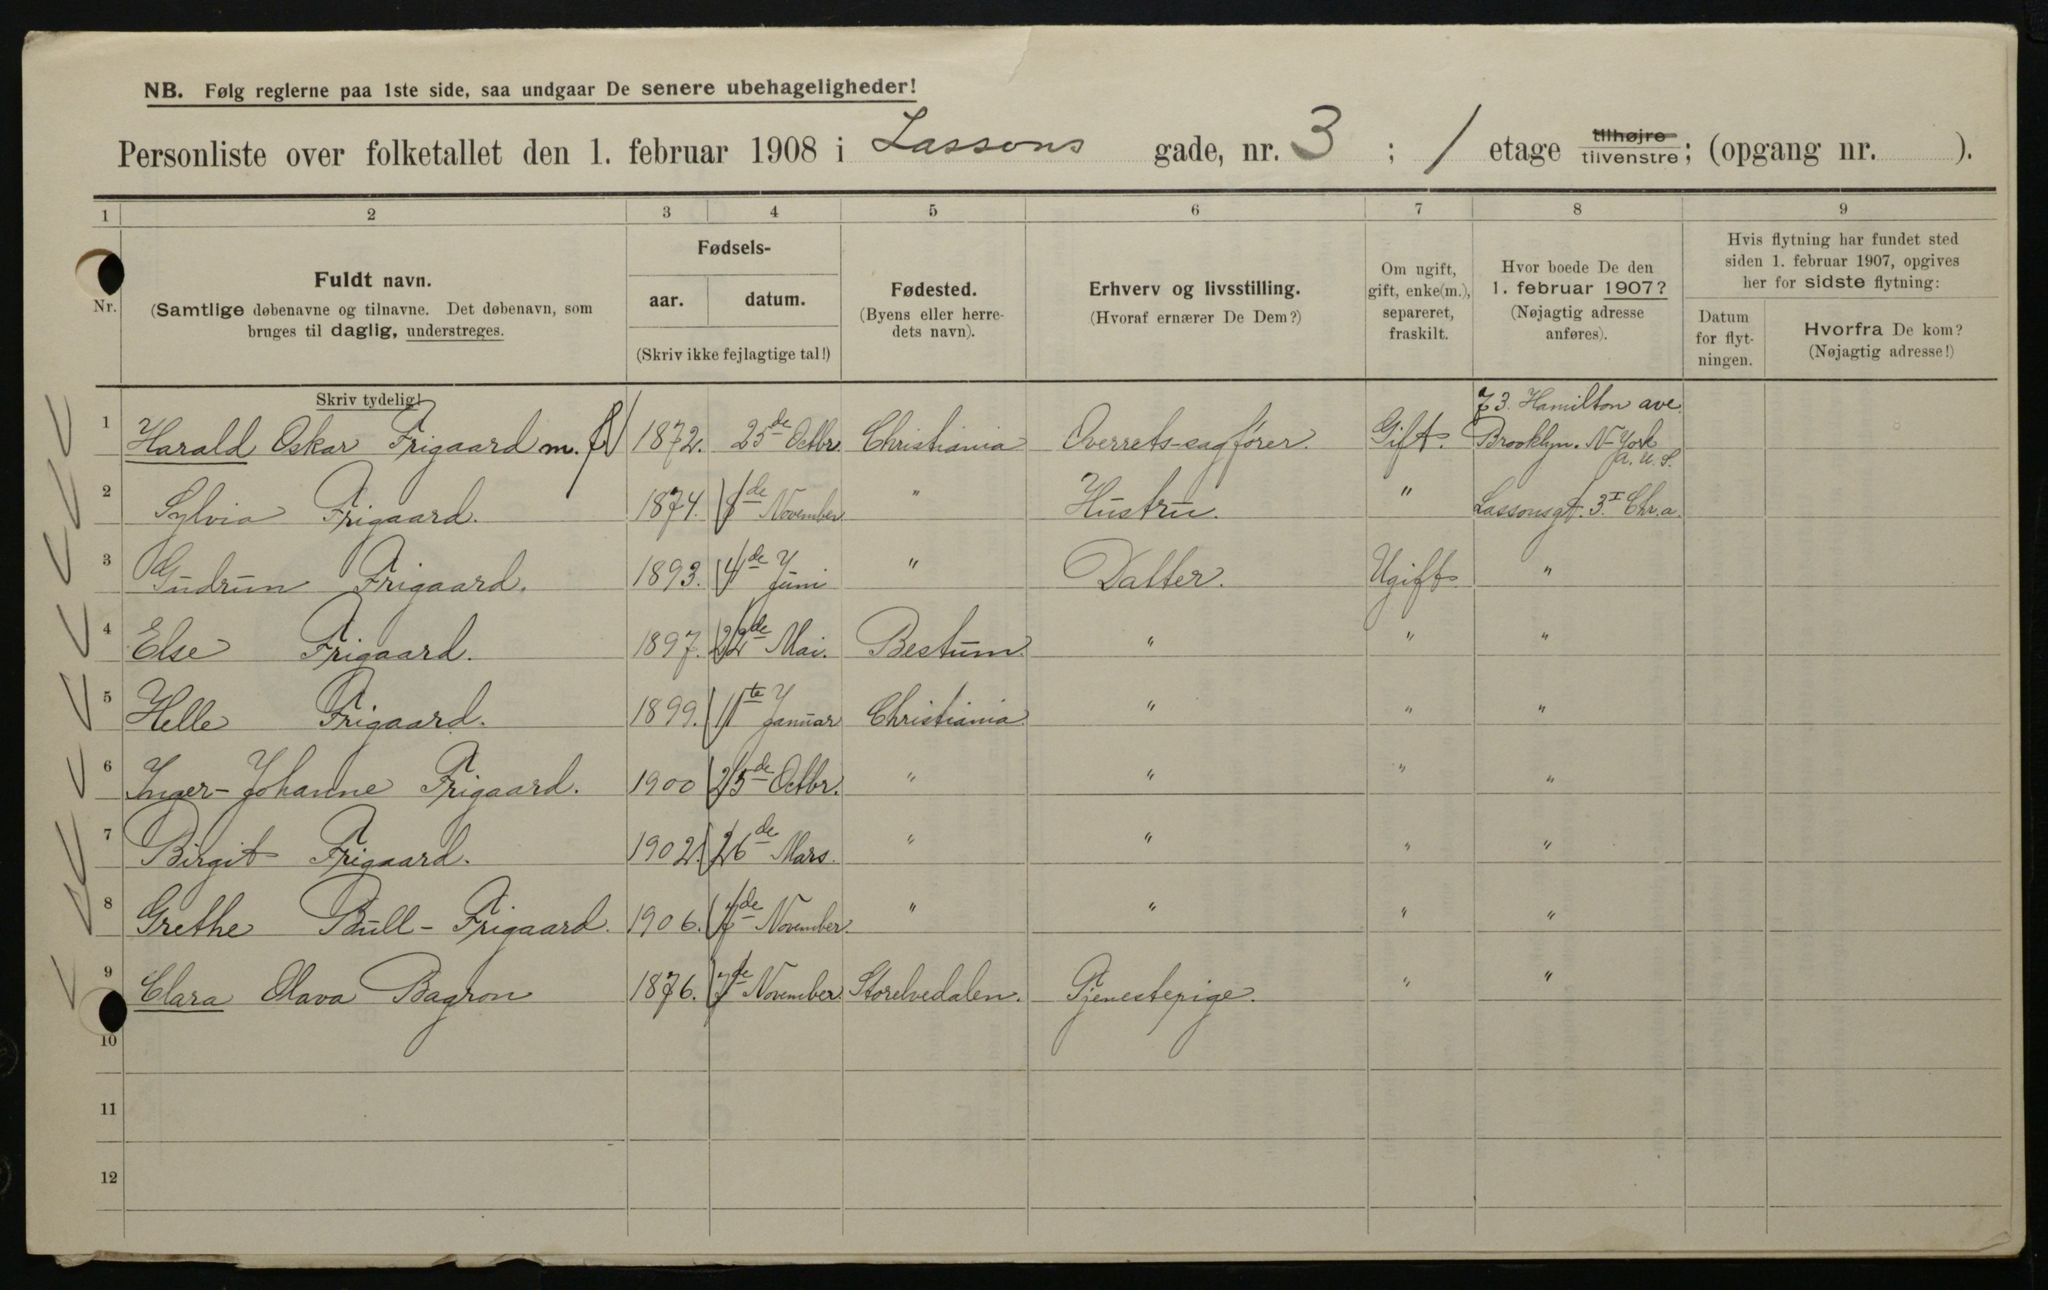 NB. Følg reglerne paa 1ste side, saa undgaar De senere ubehageligheder!
Personliste over folketallet den 1. februar 1908 i Lassons gade, nr. 3; 1 etage tilhøjre tilvenstre; (opgang nr. ).
1 2 3 4 5 6 7 8 9
Nr.
Fuldt navn.
(Samtlige døbenavne og tilnavne. Det døbenavn, som
bruges til daglig, understreges.
Skriv tydelig!
Fødsels-
aar. datum.
(Skriv ikke fejlagtige tal!)
Fødested.
(Byens eller herre-
dets navn).
Erhverv og livsstilling.
(Hvoraf ernærer De Dem?)
Om ugift,
gift, enke(m.),
separeret,
fraskilt.
Hvor boede De den
1. februar 1907?
(Nøjagtig adresse
anføres).
Hvis flytning har fundet sted
siden 1. februar 1907, opgives
her for sidste flytning:
Datum
for flyt-
ningen.
Hvorfra De kom?
(Nøjagtig adresse!)
1 Harald Oskar Frigaard m. 1872. 25de Octbr. Christiania Overrets-sagfører. Gift. 73. Hamilton ave.
Brooklyn. N-York
A. U. S.
2 Sylvia Frigaard. 1874. 8de November " Hustru. " Lassonsgt. 3.I Chr.a.
3 Gudrun Frigaard. 1893. 4de Juni " Datter. Ugift "
4 Else Frigaard. 1897. 22de Mai. Bestum. " " "
5 Helle Frigaard. 1899. 11te Januar Christiania " " "
6 Inger-Johanne Frigaard. 1900 25de Octbr. " " " "
7 Birgit Frigaard. 1902. 26de Mars. " " " "
8 Grethe Bull-Frigaard. 1906. 7de November. " " " "
9 Clara Olava Bagron 1876. 7de November. Storelvedalen. Tjenestepige. " "
10
11
12